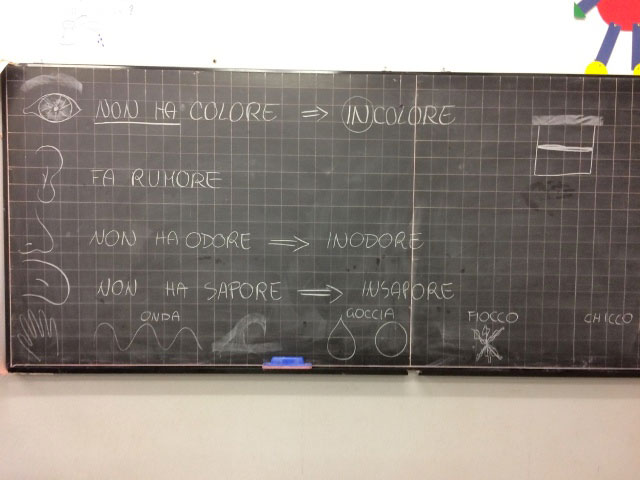 NON HA COLORE ⇒ INCOLORE
FA RUMORE
NON HA ODORE ⇒ INODORE
NON HA SAPORE ⇒ INSAPORE
ONDA GOCCIA FIOCCO CHICCO